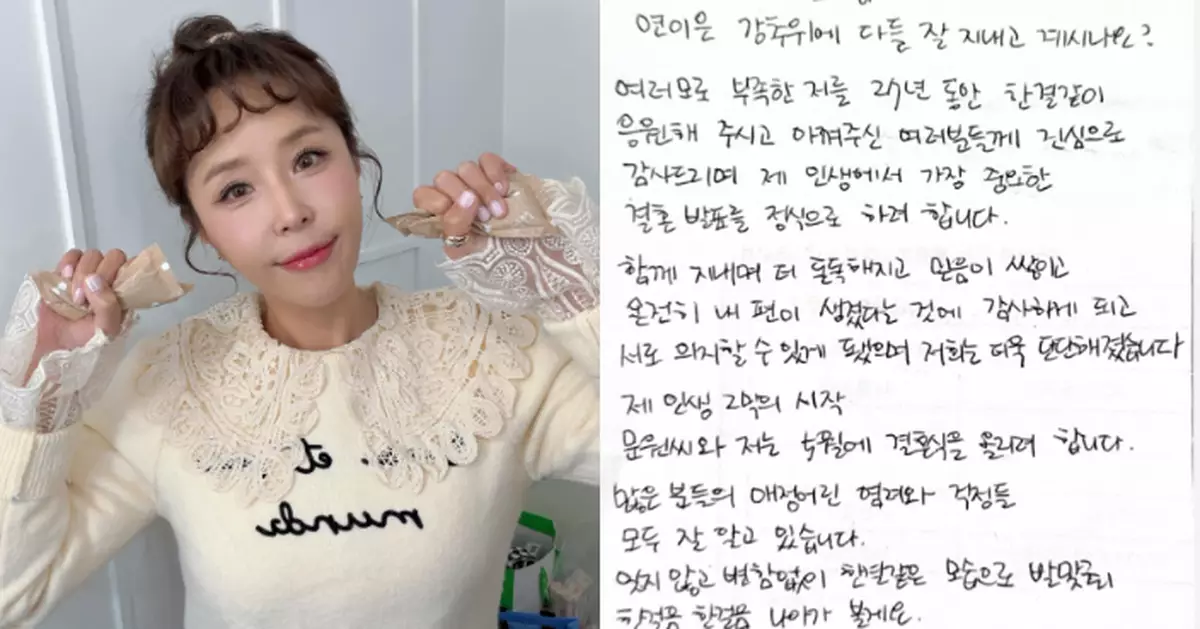 et
mundi
연이은 강추위에 다들 잘 지내고 계시나요?
여러모로 부족한 저를 27년 동안 한결같이
응원해 주시고 아껴주신 여러분들께 진심으로
감사드리며 제 인생에서 가장 중요한
결혼 발표를 정식으로 하려 합니다.
함께 지내며 더 돈독해지고 믿음이 쌓이고
온전히 내 편이 생겼다는 것에 감사하게 되고
서로 의지할 수 있게 됐으며 저희는 더욱 단단해졌습니다
제 인생 2막의 시작
문원씨와 저는 5월에 결혼식을 올리려 합니다.
많은 분들의 애정어린 격려와 걱정들
모두 잘 알고 있습니다.
잊지 않고 변함없이 한결같은 모습으로 발맞춰
한걸음 한걸음 나아가 볼게요.